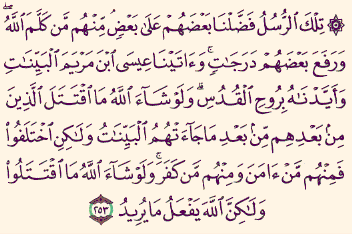 ۞ تِلْكَ ٱلرُّسُلُ فَضَّلْنَا بَعْضَهُمْ عَلَىٰ بَعْضٍۘ مِّنْهُم مَّن كَلَّمَ ٱللَّهُۖ
وَرَفَعَ بَعْضَهُمْ دَرَجَٰتٍۚ وَءَاتَيْنَا عِيسَى ٱبْنَ مَرْيَمَ ٱلْبَيِّنَٰتِ
وَأَيَّدْنَٰهُ بِرُوحِ ٱلْقُدُسِۗ وَلَوْ شَآءَ ٱللَّهُ مَا ٱقْتَتَلَ ٱلَّذِينَ
مِنۢ بَعْدِهِم مِّنۢ بَعْدِ مَا جَآءَتْهُمُ ٱلْبَيِّنَٰتُ وَلَٰكِنِ ٱخْتَلَفُوا۟
فَمِنْهُم مَّنْ ءَامَنَ وَمِنْهُم مَّن كَفَرَۚ وَلَوْ شَآءَ ٱللَّهُ مَا ٱقْتَتَلُوا۟
وَلَٰكِنَّ ٱللَّهَ يَفْعَلُ مَا يُرِيدُ ٢٥٣